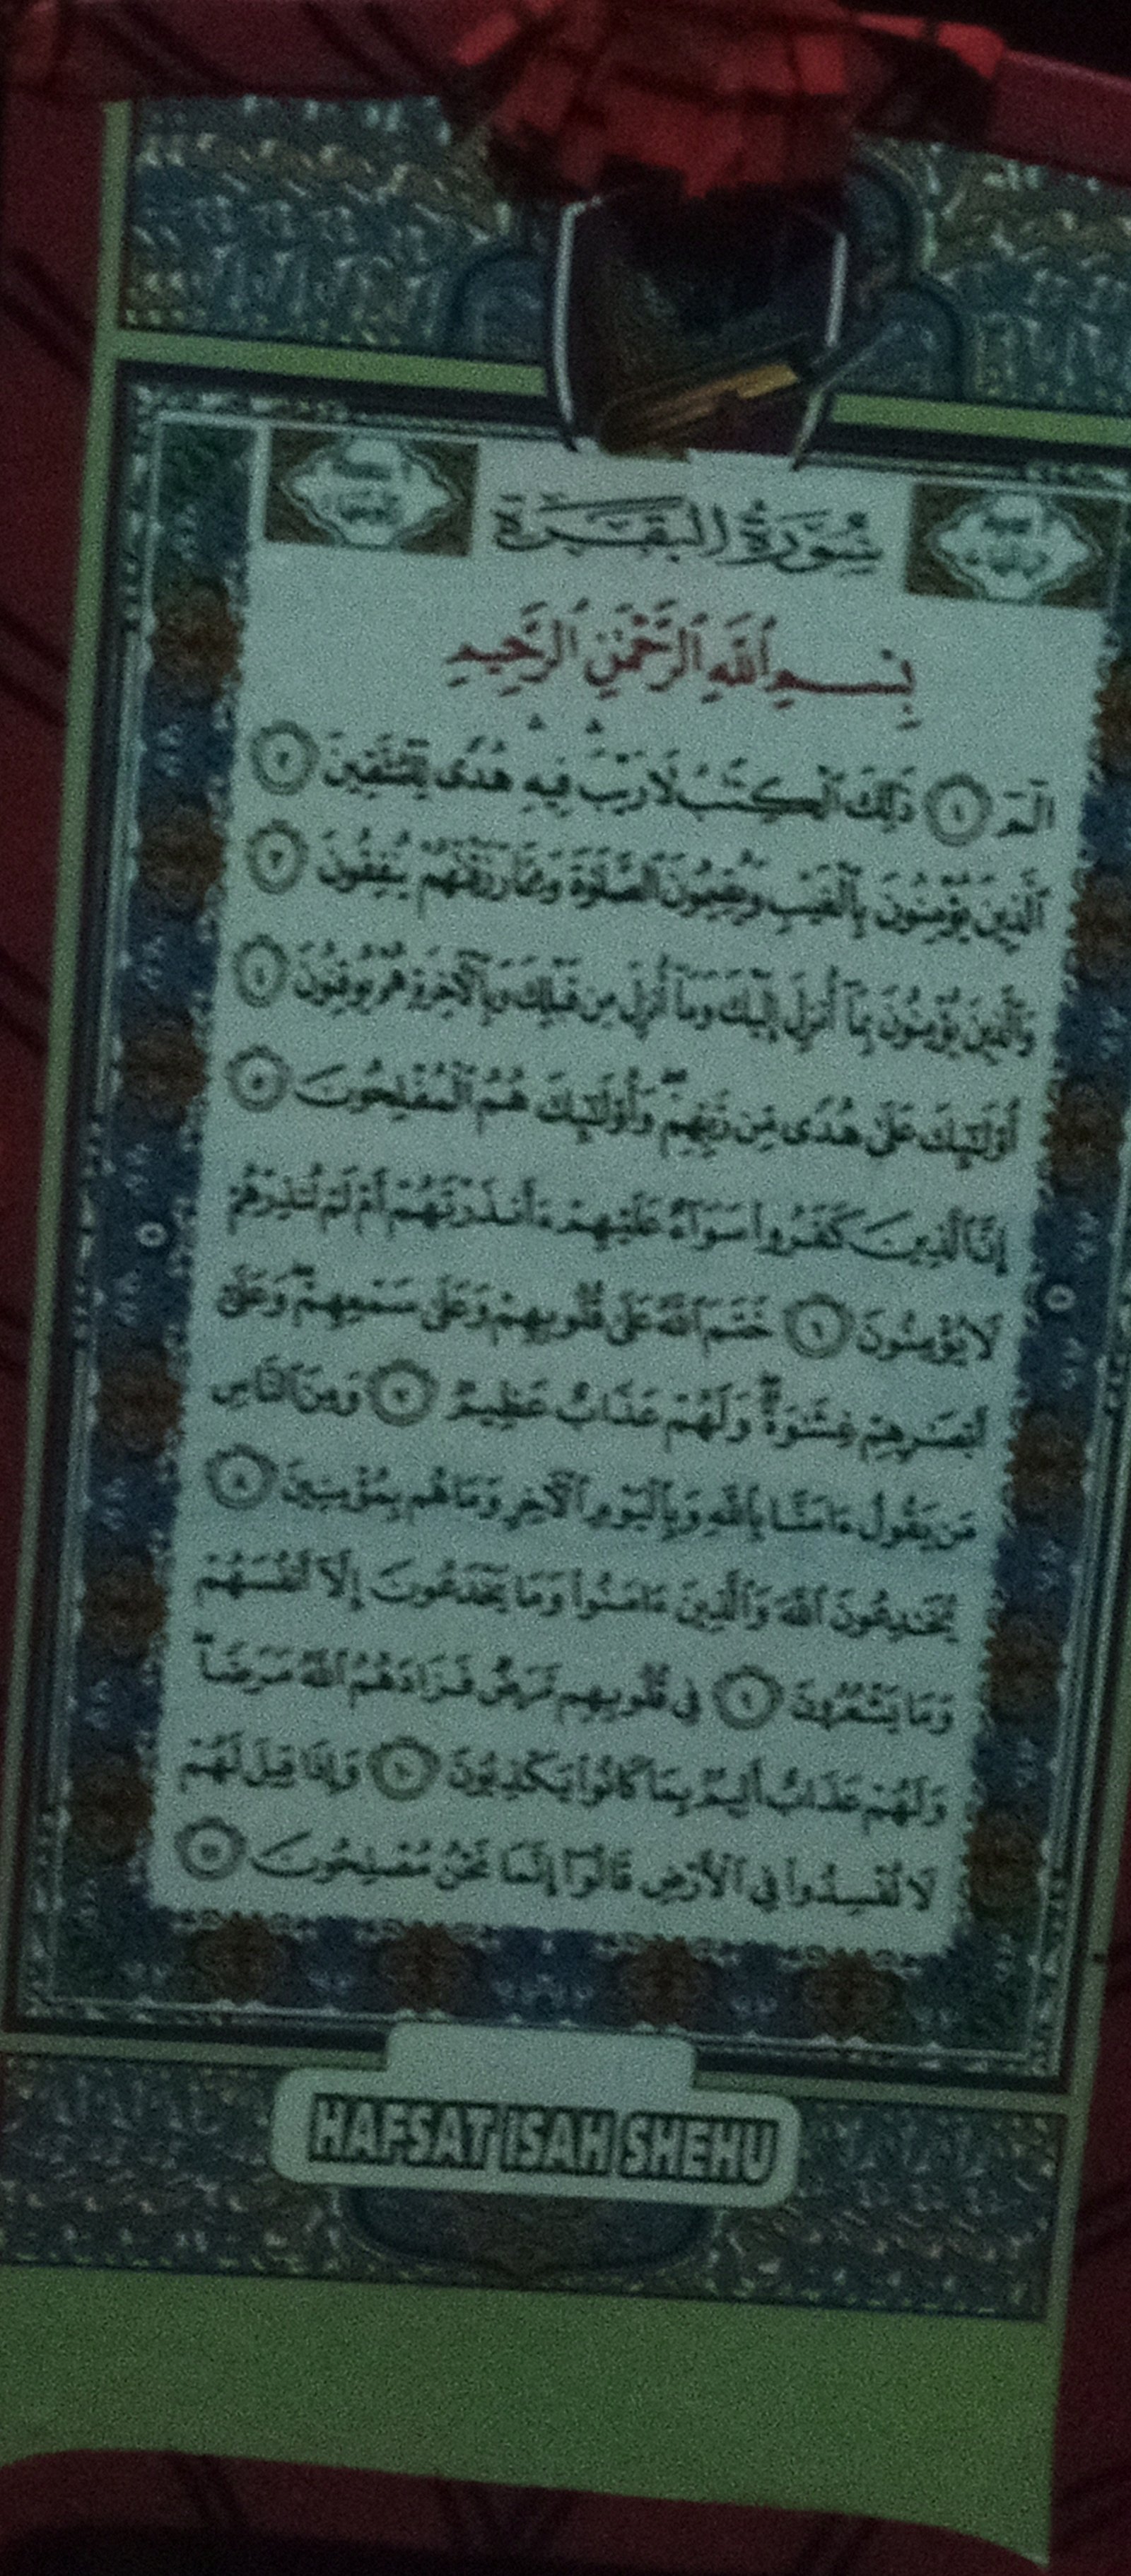 سُورَةُ الْبَقَرَةِ
بِسْمِ ٱللَّهِ ٱلرَّحْمَٰنِ ٱلرَّحِيمِ
الٓمٓ ١ ذَٰلِكَ ٱلْكِتَٰبُ لَا رَيْبَ ۛ فِيهِ ۛ هُدًى لِّلْمُتَّقِينَ ٢
ٱلَّذِينَ يُؤْمِنُونَ بِٱلْغَيْبِ وَيُقِيمُونَ ٱلصَّلَوٰةَ وَمِمَّا رَزَقْنَٰهُمْ يُنفِقُونَ ٣
وَٱلَّذِينَ يُؤْمِنُونَ بِمَآ أُنزِلَ إِلَيْكَ وَمَآ أُنزِلَ مِن قَبْلِكَ وَبِٱلْءَاخِرَةِ هُمْ يُوقِنُونَ ٤
أُو۟لَٰٓئِكَ عَلَىٰ هُدًى مِّن رَّبِّهِمْ ۖ وَأُو۟لَٰٓئِكَ هُمُ ٱلْمُفْلِحُونَ ٥
إِنَّ ٱلَّذِينَ كَفَرُوا۟ سَوَآءٌ عَلَيْهِمْ ءَأَنذَرْتَهُمْ أَمْ لَمْ تُنذِرْهُمْ
لَا يُؤْمِنُونَ ٦ خَتَمَ ٱللَّهُ عَلَىٰ قُلُوبِهِمْ وَعَلَىٰ سَمْعِهِمْ ۖ وَعَلَىٰٓ
أَبْصَٰرِهِمْ غِشَٰوَةٌ ۖ وَلَهُمْ عَذَابٌ عَظِيمٌ ٧ وَمِنَ ٱلنَّاسِ
مَن يَقُولُ ءَامَنَّا بِٱللَّهِ وَبِٱلْيَوْمِ ٱلْءَاخِرِ وَمَا هُم بِمُؤْمِنِينَ ٨
يُخَٰدِعُونَ ٱللَّهَ وَٱلَّذِينَ ءَامَنُوا۟ وَمَا يَخْدَعُونَ إِلَّآ أَنفُسَهُمْ
وَمَا يَشْعُرُونَ ٩ فِى قُلُوبِهِم مَّرَضٌ فَزَادَهُمُ ٱللَّهُ مَرَضًا ۖ
وَلَهُمْ عَذَابٌ أَلِيمٌۢ بِمَا كَانُوا۟ يَكْذِبُونَ ١٠ وَإِذَا قِيلَ لَهُمْ
لَا تُفْسِدُوا۟ فِى ٱلْأَرْضِ قَالُوٓا۟ إِنَّمَا نَحْنُ مُصْلِحُونَ ١١
HAFSAT ISAH SHEHU